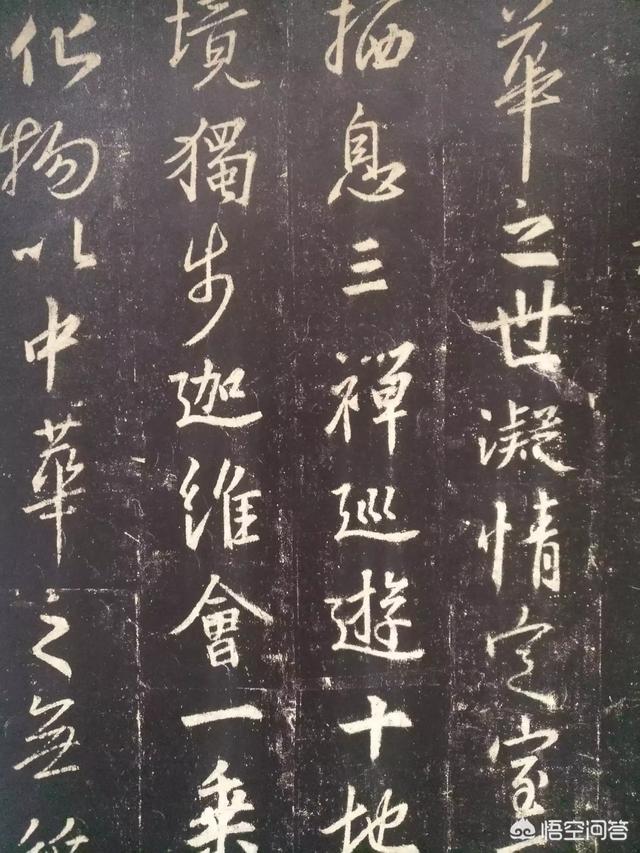 華之世凝情定室
栖息三禪巡遊十地
境獨步迦維會一乘
化物以中華之無
悟空问答